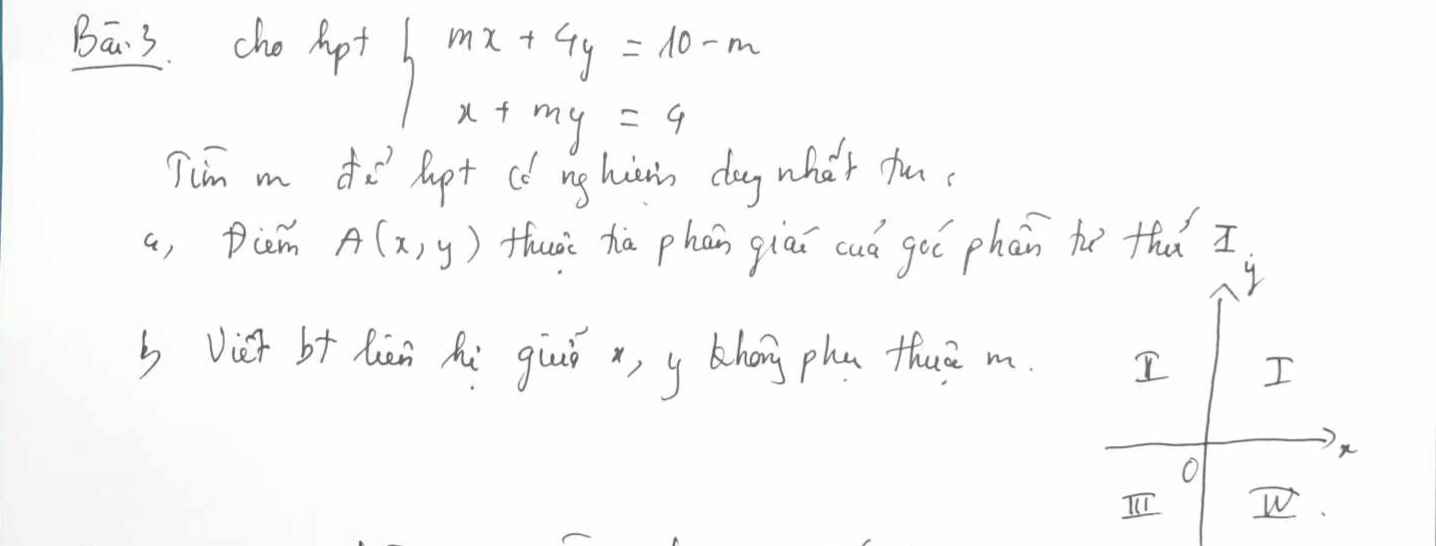 Bài 3. Cho hpt { mx + 4y = 10 - m
x + my = 4
Tìm m để hpt có nghiệm duy nhất tm:
a, Điểm A(x, y) thuộc tia phân giác của góc phần tư thứ I.
b, Viết bt liên hệ giữa x, y không phụ thuộc m.
y
II I
x
O
III IV.